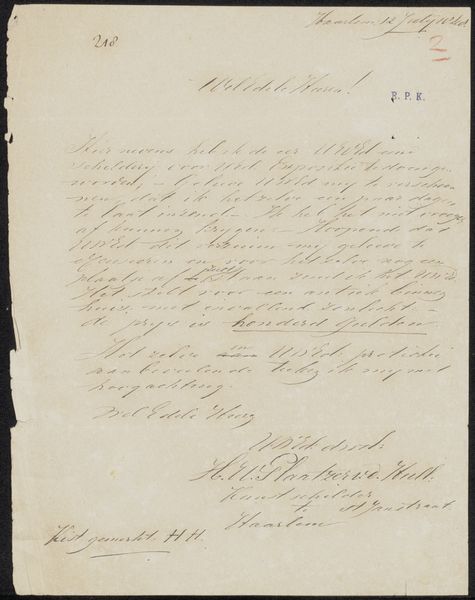 Haarlem 12 July
2
218
WelEdele Heeren!
E. P. K.
Hier nevens heb ik de eer UWEd een
schilderij voor Uwe Expositie te
worden, – Gelieve UWEd my te verschoo
nen, dat ik hetzelve een paar dagen
te laat inzend. – Ik heb het niet vroeger
af kunnen krygen – Hoopende dat
UWEd dit verzuim my gelieve te
en voor hetzelve nog een
plaatsje zult
Het stelt voor een antiek
huis, met invallend zonlicht –
de prys is honderd gulden
Het zelve in UWEd: protectie
aanbevelende teeken ik my met
hoogachting.
Wel Edele Heeren
UWEd: dienr:
H. U. Plaatzer v. d. Hull
Kunstschilder
St Janstraat
Haarlem
Kist gemerkt. H H.